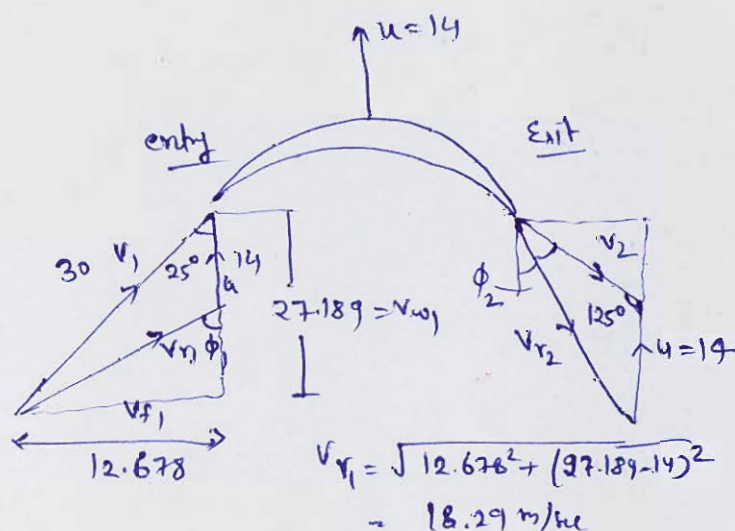 u=14
entry
Exit
30 V₁
25°
14
u
27.189 = Vw₁
Vr₁ ϕ
Vf₁
12.678
ϕ₂
V₂
125°
Vr₂
u=14
Vr₁ = √12.678² + (27.189-14)²
= 18.29 m/sec